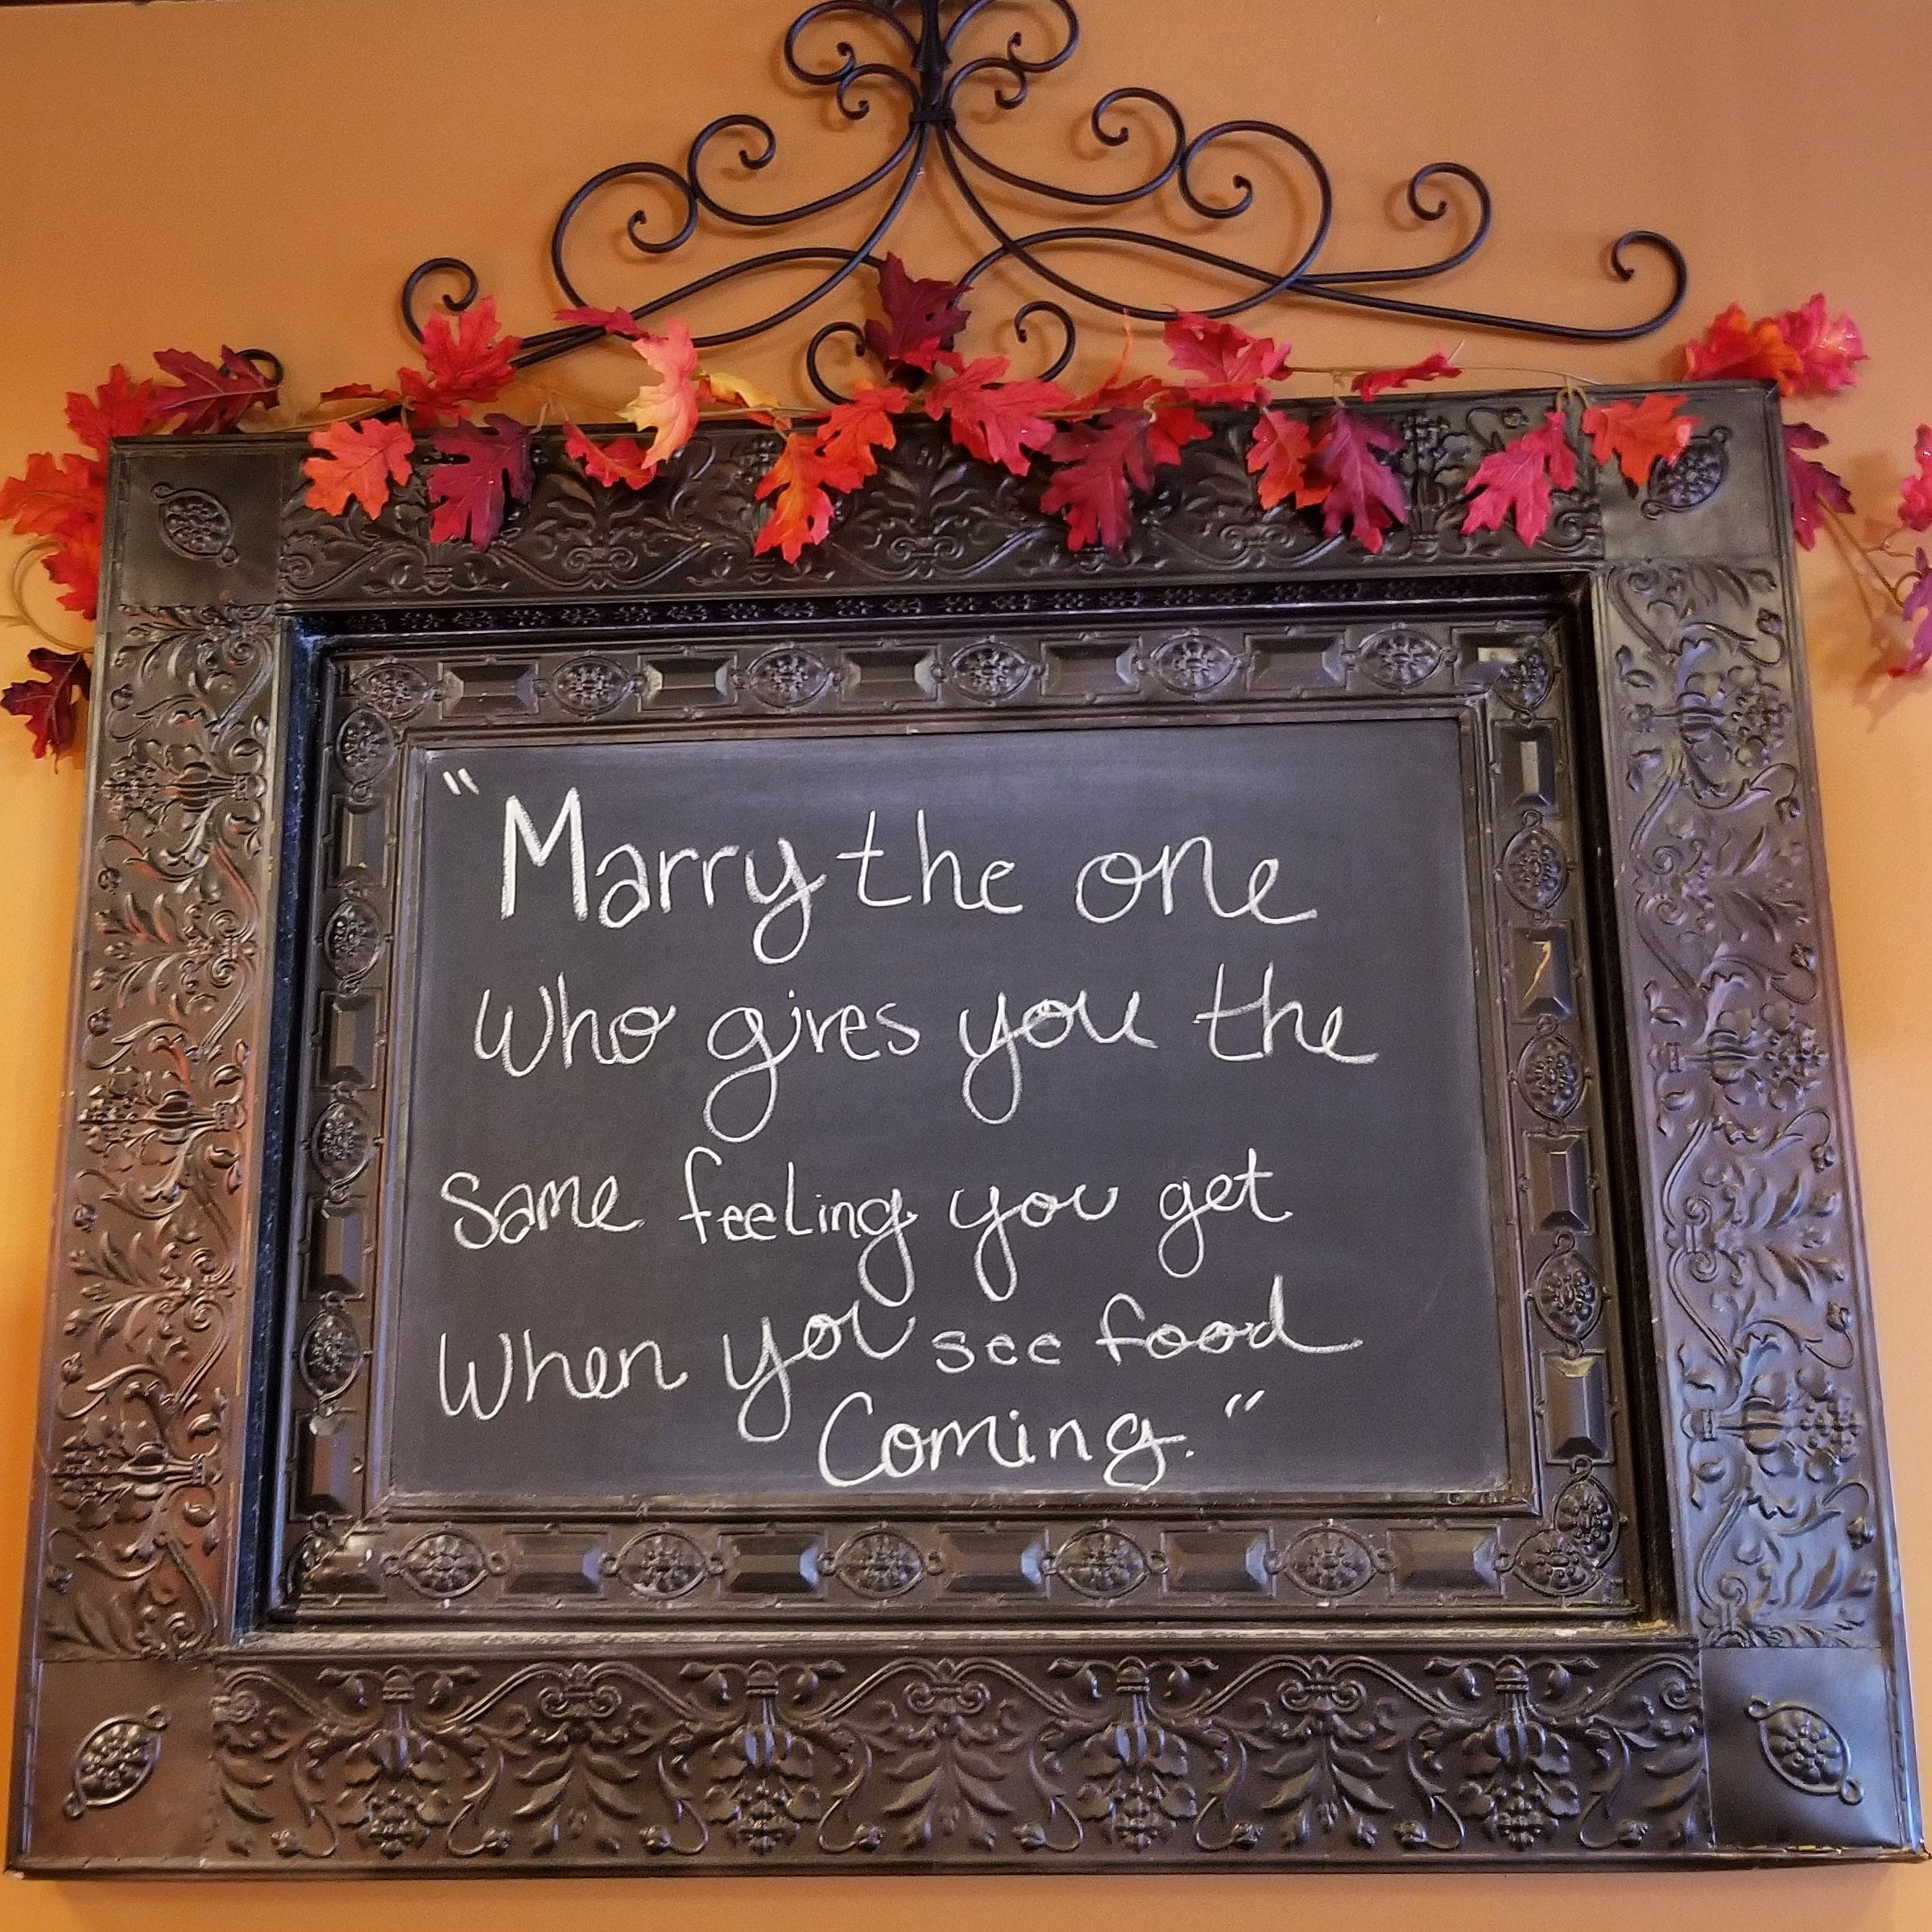 "Marry the one
Who gives you the
Same feeling you get
When you see food
Coming."